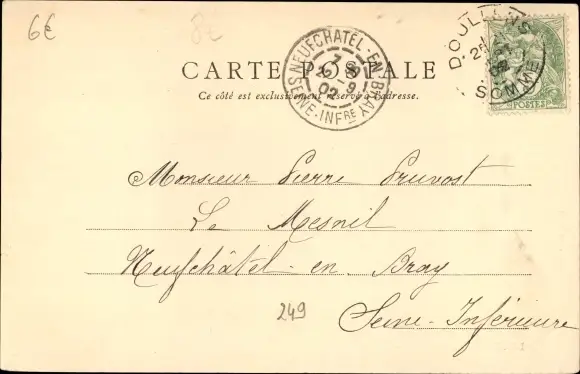 6€
CARTE POSTALE
Ce côté est exclusivement réservé à l'adresse.
NEUFCHATEL-EN-BRAY
SEINE-INFRE
DOULLENS
SOMME
POSTES
Monsieur Pierre Pruvost
Le Mesnil
Neufchâtel-en Bray
249
Seine-Inférieure